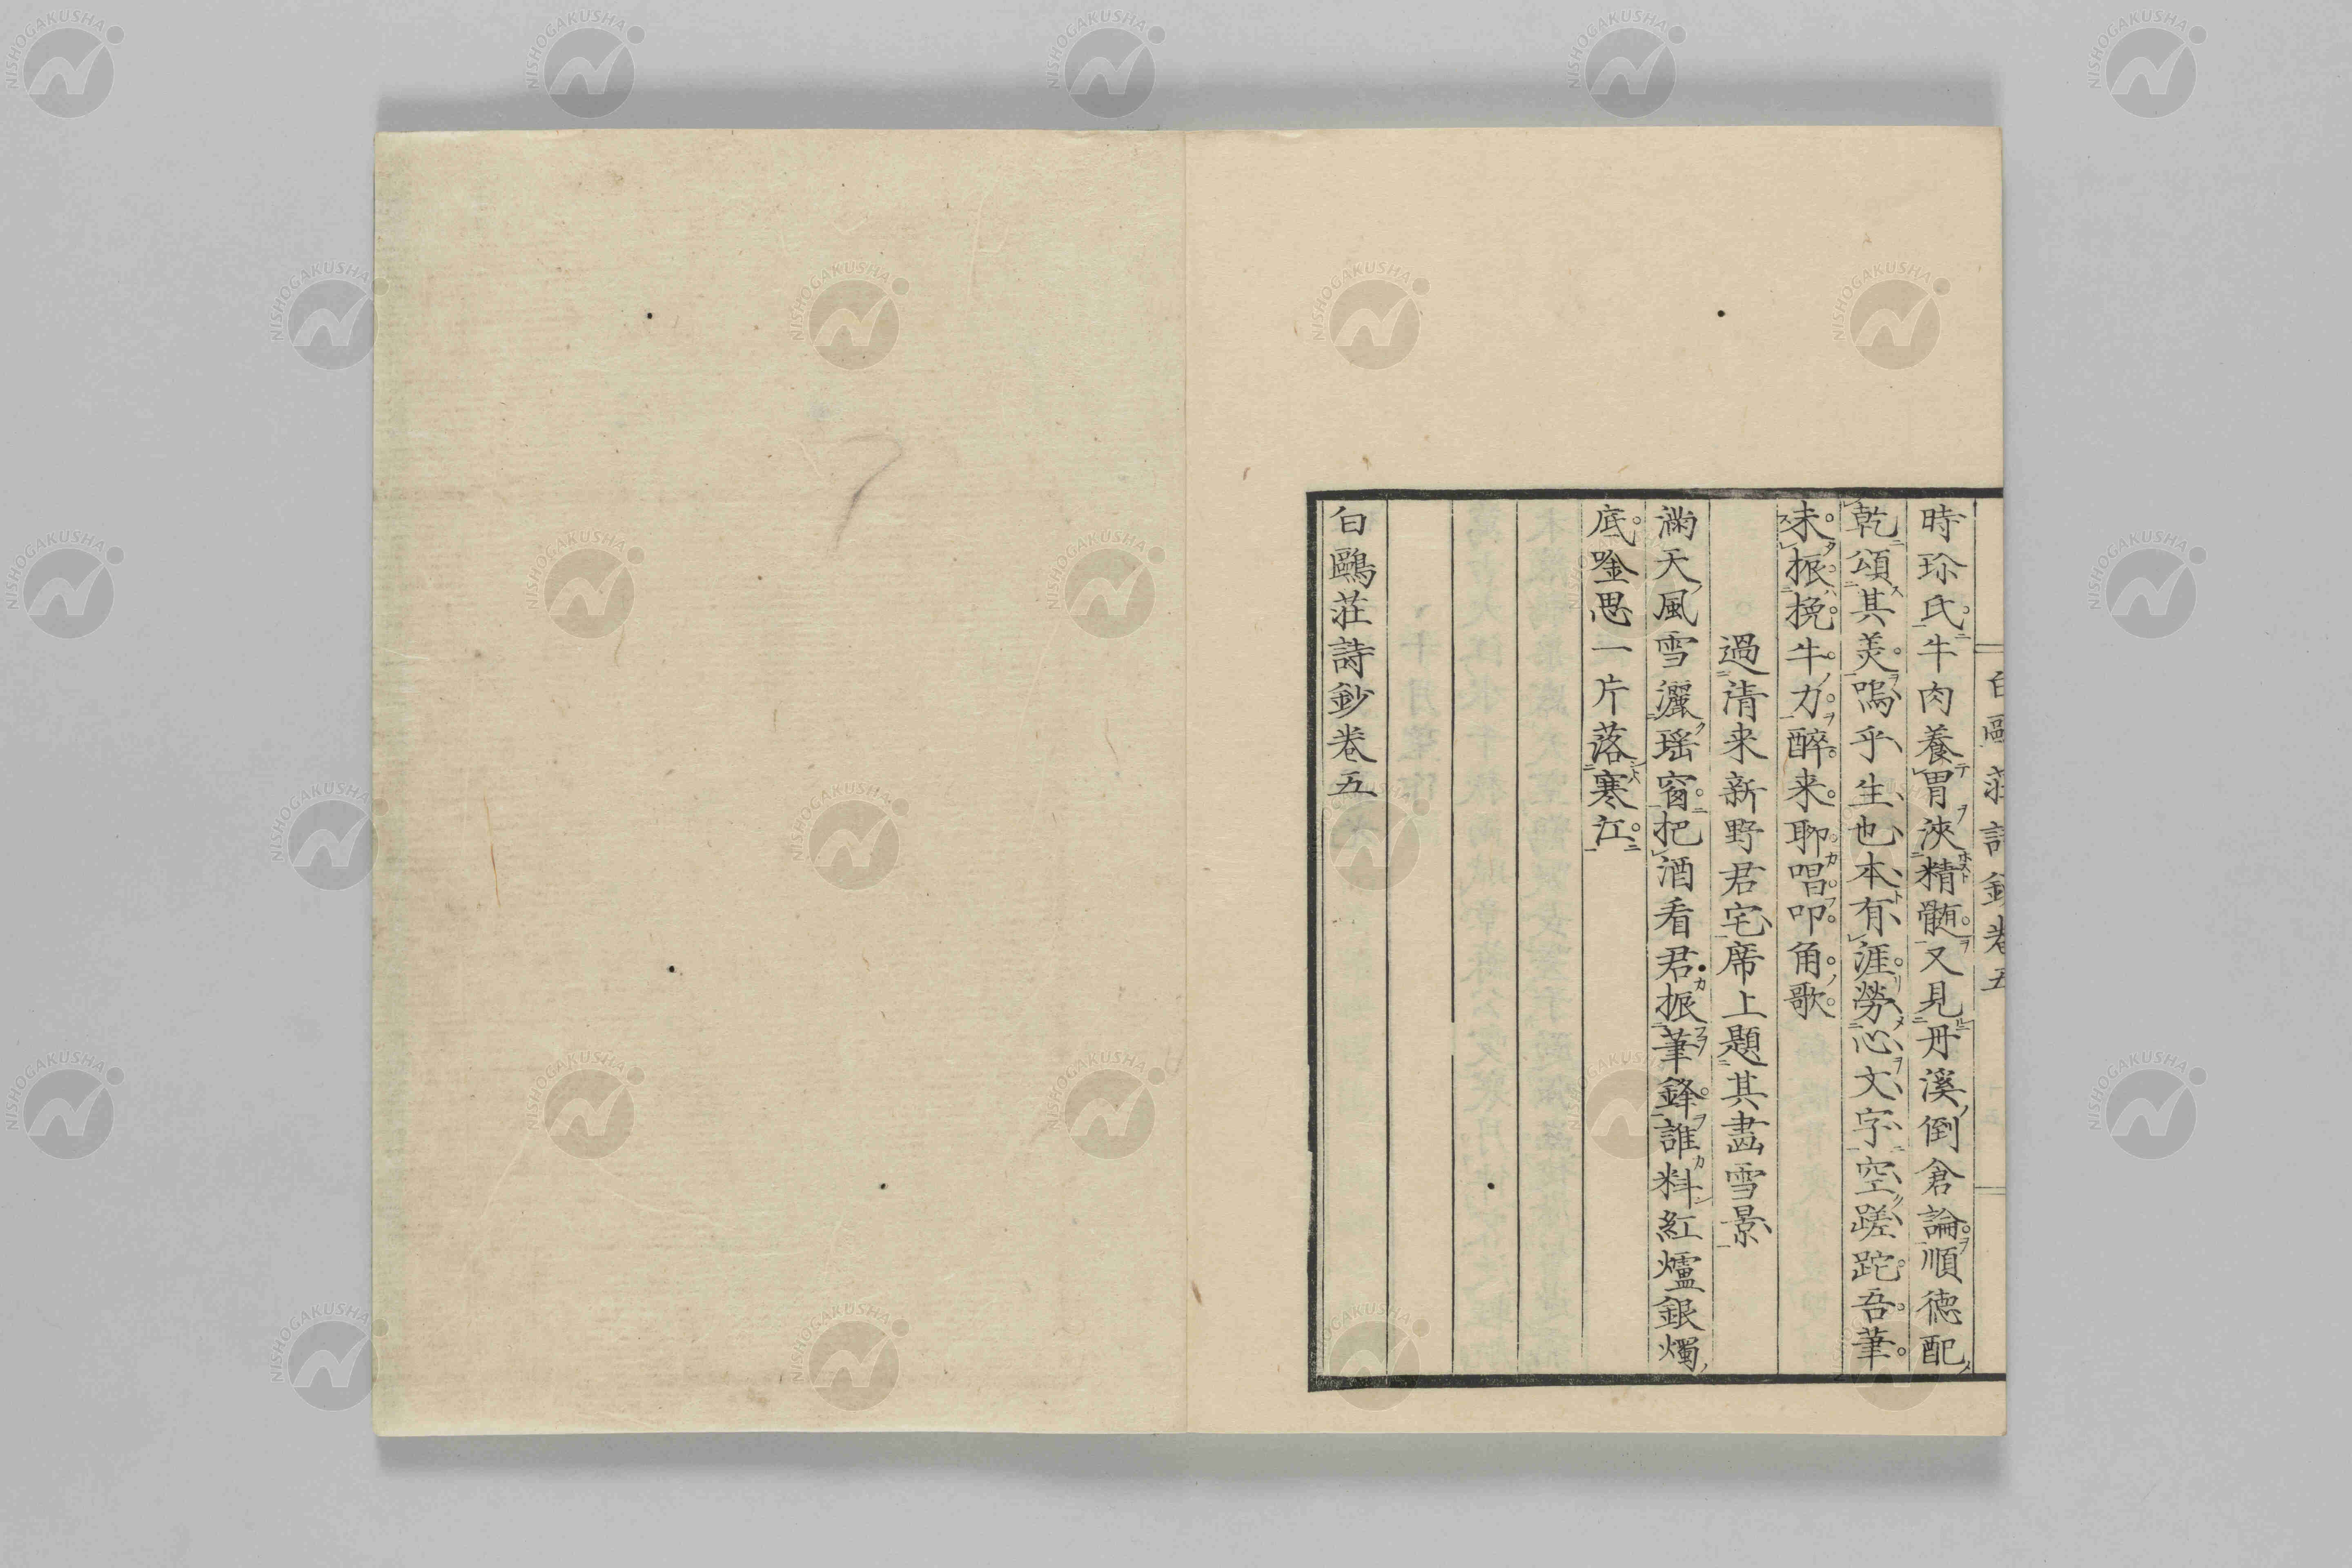 白鷗莊詩鈔卷五
時珍氏牛肉養胃浹精髓又見丹溪倒倉論順德配
乾頌其美嗚乎生也本有涯勞心文字空蹉跎吾筆
未振挽牛力醉来聊唱叩角歌
過清来新野君宅席上題其畫雪景
滿天風雪灑瑶窗把酒看君振筆鋒誰料紅爐銀燭
底唫思一片落寒江
白鷗莊詩鈔卷五
NISHOGAKUSHA